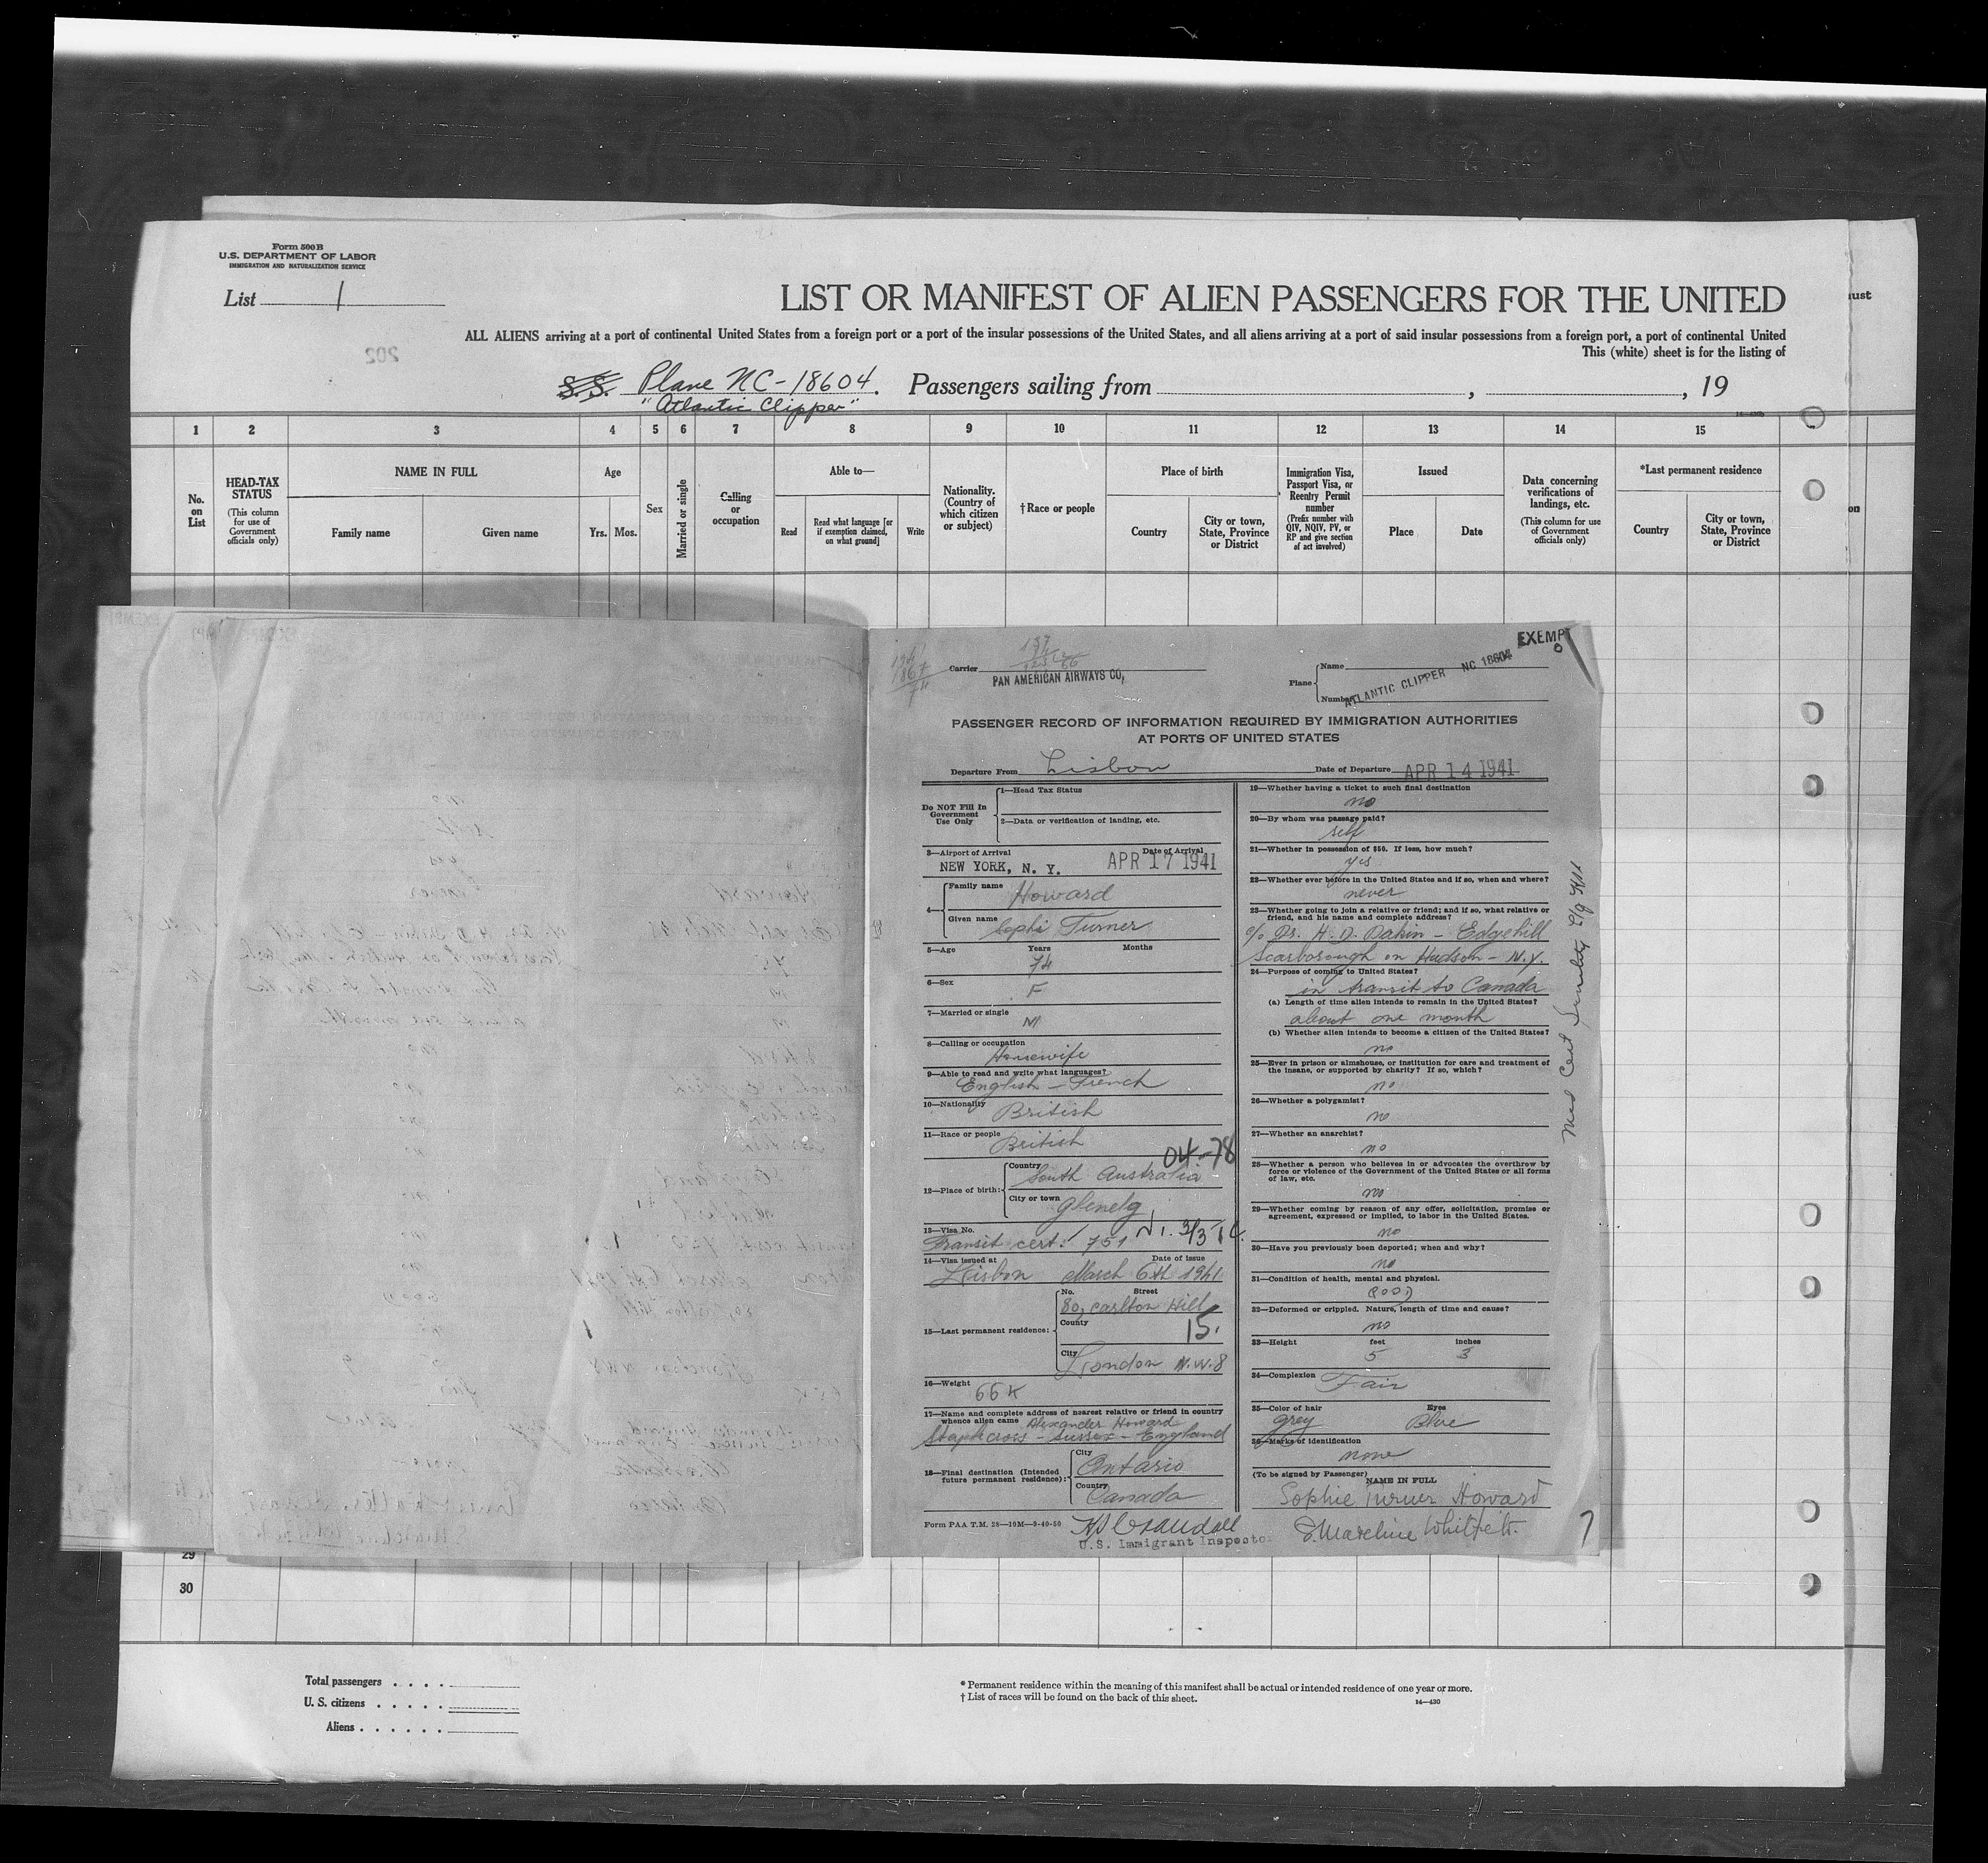 Form 500 B
U.S. DEPARTMENT OF LABOR
IMMIGRATION AND NATURALIZATION SERVICE
List 1
LIST OR MANIFEST OF ALIEN PASSENGERS FOR THE UNITED
ALL ALIENS arriving at a port of continental United States from a foreign port or a port of the insular possessions of the United States, and all aliens arriving at a port of said insular possessions from a foreign port, a port of continental United
This (white) sheet is for the listing of
202
S.S. Plane NC-18604. Passengers sailing from , , 19
"Atlantic Clipper"
1 2 3 4 5 6 7 8 9 10 11 12 13 14 15
No. on List
HEAD-TAX STATUS
(This column for use of Government officials only)
NAME IN FULL
Family name
Given name
Age
Yrs. Mos.
Sex
Married or single
Calling or occupation
Able to—
Read
Read what language [or if exemption claimed, on what ground]
Write
Nationality. (Country of which citizen or subject)
†Race or people
Place of birth
Country
City or town, State, Province or District
Immigration Visa, Passport Visa, or Reentry Permit number
(Prefix number with QIV, NQIV, PV, or RP and give section of act involved)
Issued
Place
Date
Data concerning verifications of landings, etc.
(This column for use of Government officials only)
*Last permanent residence
Country
City or town, State, Province or District
EXEMP
Carrier
PAN AMERICAN AIRWAYS CO,
Plane
Name
Number
ATLANTIC CLIPPER NC 18604
PASSENGER RECORD OF INFORMATION REQUIRED BY IMMIGRATION AUTHORITIES
AT PORTS OF UNITED STATES
Departure From Lisbon
Date of Departure APR 14 1941
Do NOT Fill In Government Use Only
1—Head Tax Status
2—Data or verification of landing, etc.
3—Airport of Arrival Date of Arrival
NEW YORK, N. Y. APR 17 1941
4— Family name Howard
Given name Sophi Turner
5—Age Years Months
74
6—Sex
F
7—Married or single
M
8—Calling or occupation
Housewife
9—Able to read and write what languages?
English - French
10—Nationality
British
11—Race or people
British
04-78
12—Place of birth:
Country
South Australia
City or town
Glenelg
13—Visa No.
Transit cert. 751
14—Visa issued at Date of issue
Lisbon March 6th 1941
15—Last permanent residence:
No. Street
80, Carlton Hill
County
15.
City
London N.W.8
16—Weight
66 K
17—Name and complete address of nearest relative or friend in country
whence alien came Alexander Howard
Staplecross - Sussex - England
18—Final destination (Intended future permanent residence):
City
Ontario
Country
Canada
Form PAA T.M. 28—10M—9-40-50
U.S. Immigrant Inspector
19—Whether having a ticket to such final destination
no
20—By whom was passage paid?
self
21—Whether in possession of $50. If less, how much?
yes
22—Whether ever before in the United States and if so, when and where?
never
23—Whether going to join a relative or friend; and if so, what relative or
friend, and his name and complete address?
c/o Dr. H. D. Dakin - Edgehill
Scarborough on Hudson - N.Y.
24—Purpose of coming to United States?
in transit to Canada
(a) Length of time alien intends to remain in the United States?
about one month
(b) Whether alien intends to become a citizen of the United States?
no
25—Ever in prison or almshouse, or institution for care and treatment of
the insane, or supported by charity? If so, which?
no
26—Whether a polygamist?
no
27—Whether an anarchist?
no
28—Whether a person who believes in or advocates the overthrow by
force or violence of the Government of the United States or all forms
of law, etc.
no
29—Whether coming by reason of any offer, solicitation, promise or
agreement, expressed or implied, to labor in the United States.
no
30—Have you previously been deported; when and why?
no
31—Condition of health, mental and physical.
GOOD
32—Deformed or crippled. Nature, length of time and cause?
no
33—Height feet inches
5 3
34—Complexion
Fair
35—Color of hair Eyes
grey Blue
36—Marks of identification
none
(To be signed by Passenger)
NAME IN FULL
Sophie Turner Howard
7
Med Cert Senility
29
30
Total passengers
U. S. citizens
Aliens
* Permanent residence within the meaning of this manifest shall be actual or intended residence of one year or more.
† List of races will be found on the back of this sheet.
14—430